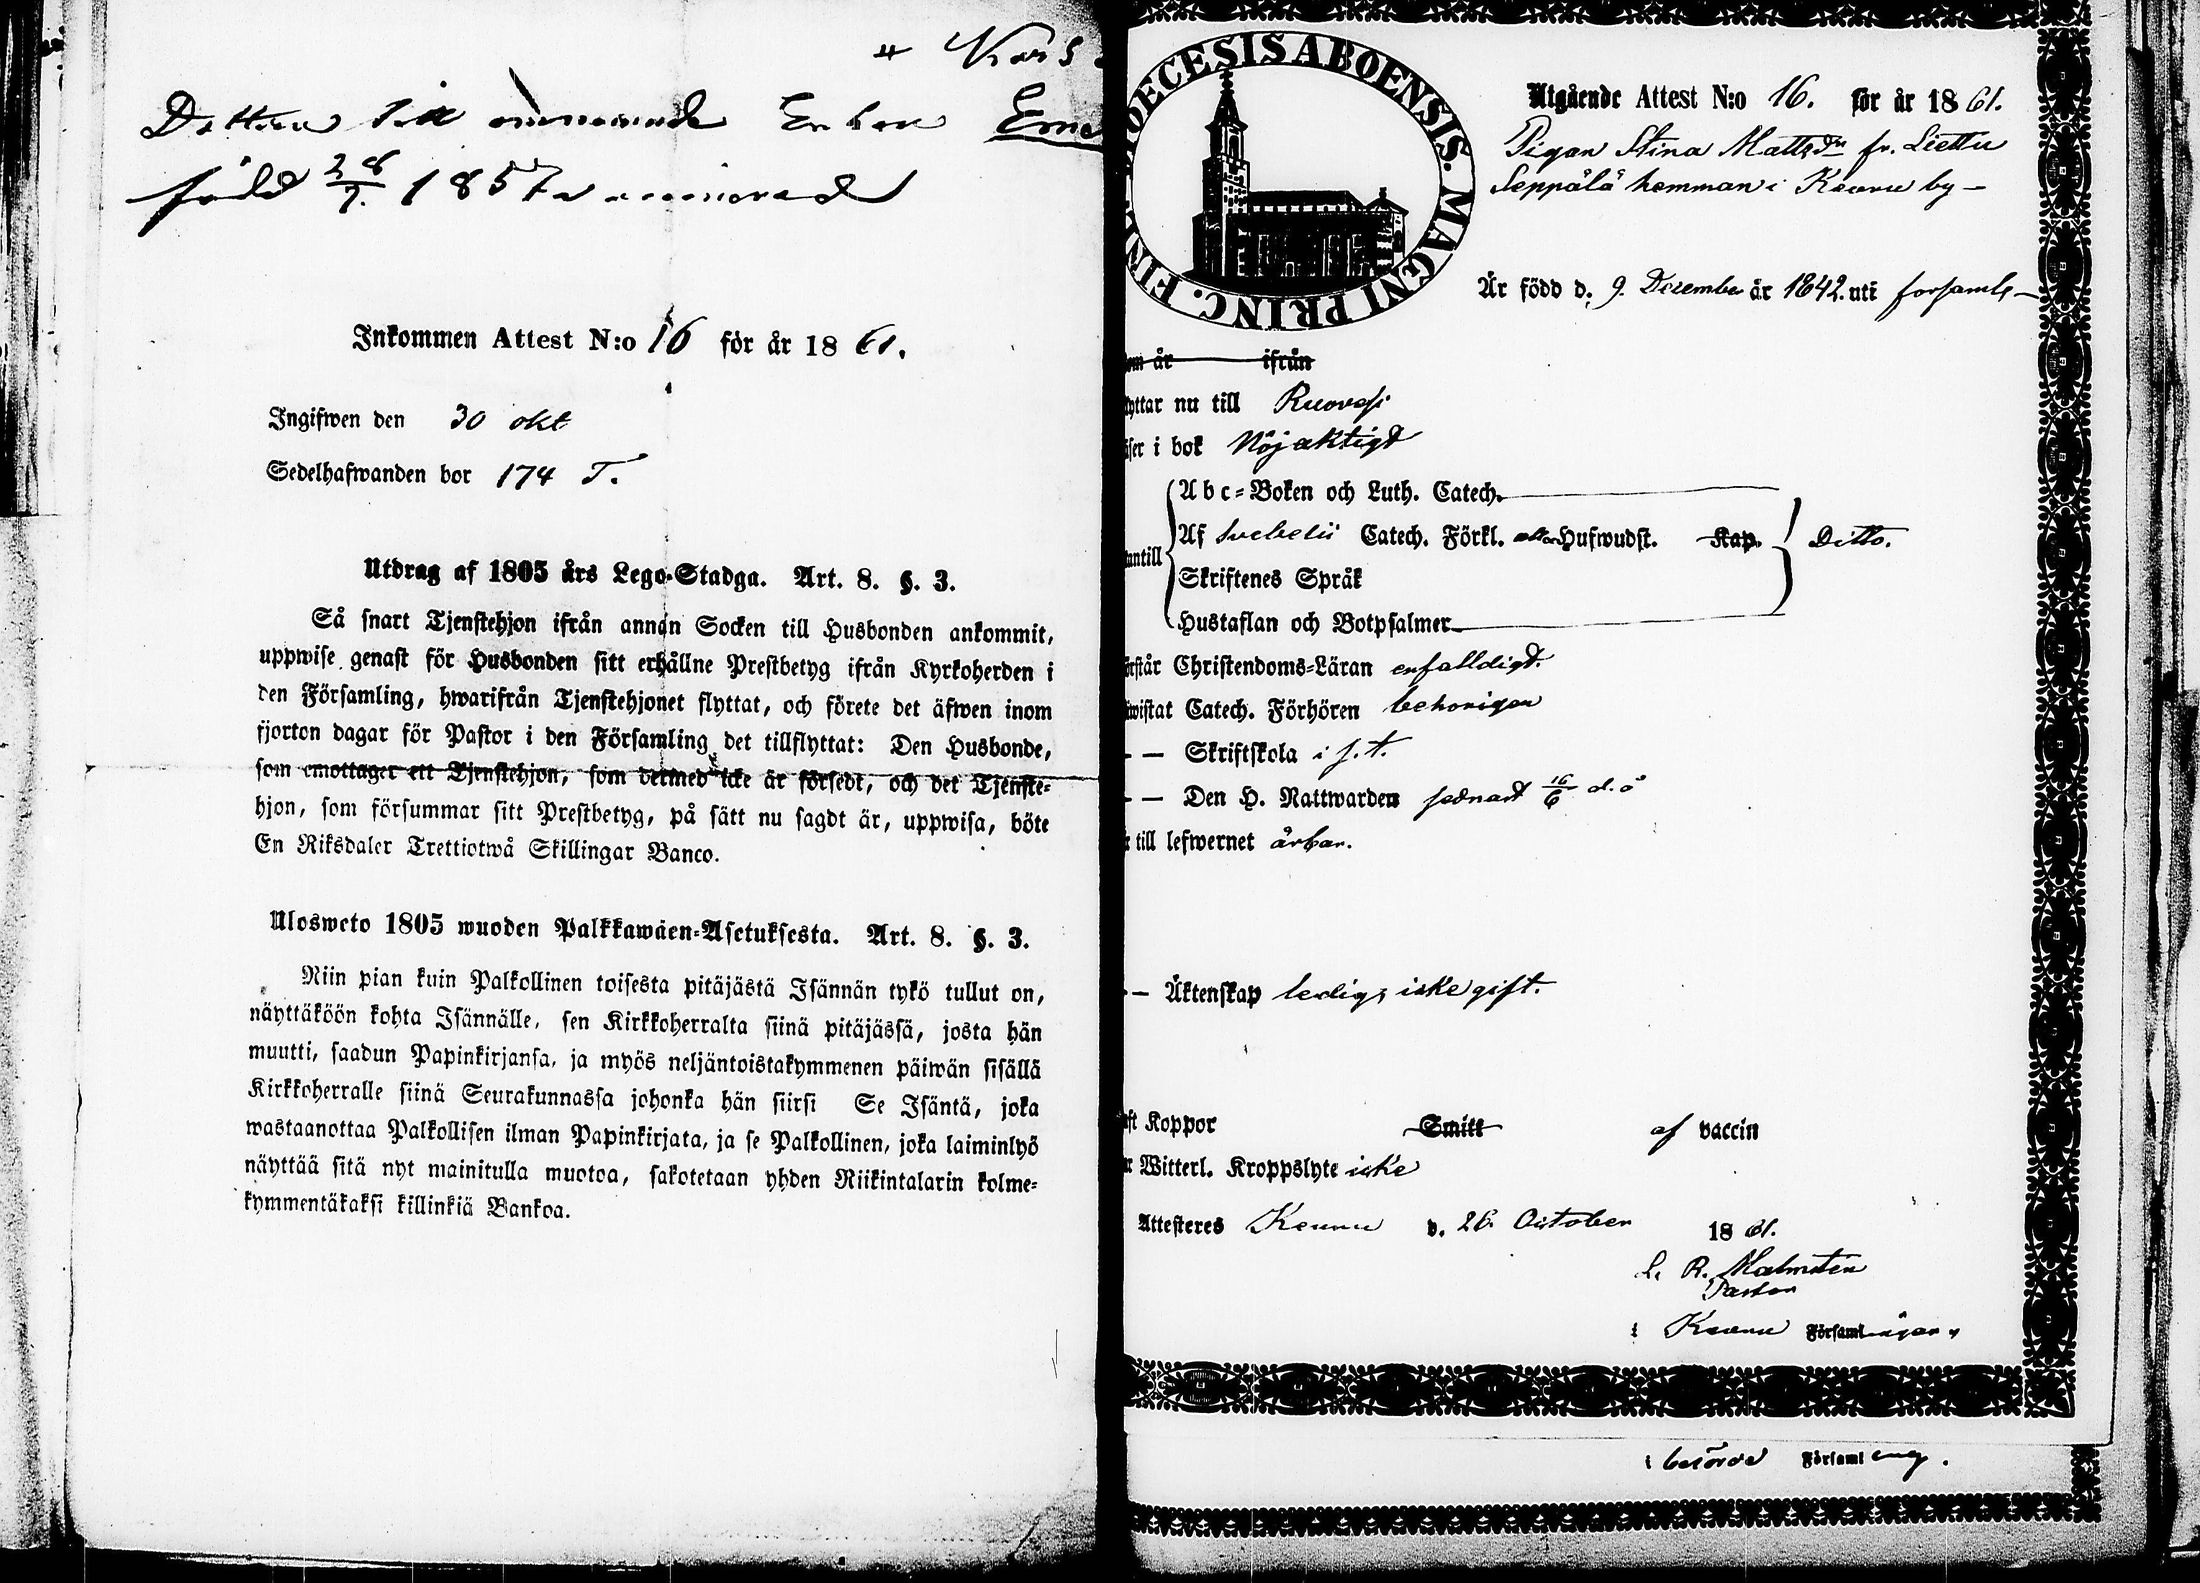 " Kars
Dottren till omnemnde Enkan Ema
född 28/7. 1857 vaccinerad
Inkommen Attest N:o 16 för år 1861.
Ingifwen den 30 okt
Sedelhafwanden bor 174 T.
Utdrag af 1805 års Lego-Stadga. Art. 8. §. 3.
Så snart Tjenstehjon ifrån annan Socken till Husbonden ankommit,
uppwise genast för Husbonden sitt erhållne Prestbetyg ifrån Kyrkoherden i
den Församling, hwarifrån Tjenstehjonet flyttat, och förete det äfwen inom
fjorton dagar för Pastor i den Församling det tillflyttat: Den Husbonde,
som emottager ett Tjenstehjon, som dermed icke är försedt, och det Tjenste-
hjon, som försummar sitt Prestbetyg, på sätt nu sagdt är, uppwisa, böte
En Riksdaler Trettiotwå Skillingar Banco.
Ulosweto 1805 wuoden Palkkawäen-Asetuksesta. Art. 8. §. 3.
Niin pian kuin Palkollinen toisesta pitäjästä Isännän tykö tullut on,
näyttäköön kohta Isännälle, sen Kirkkoherralta siinä pitäjässä, josta hän
muutti, saadun Papinkirjansa, ja myös neljäntoistakymmenen päiwän sisällä
Kirkkoherralle siinä Seurakunnassa johonka hän siirsi Se Isäntä, joka
wastaanottaa Palkollisen ilman Papinkirjata, ja se Palkollinen, joka laiminlyö
näyttää sitä nyt mainitulla muotoa, sakotetaan yhden Riikintalarin kolme-
kymmentäkaksi killinkiä Bankoa.
DIOECESIS ABOENSIS. MAGNI PRINC. FINL.
Utgående Attest N:o 16. för år 1861.
Pigan Stina Mattsdr fr. Liettu
Seppälä hemman i Keuru by –
Är född d. 9. December år 1842. uti församl. –
om år ifrån
yttar nu till Ruovesi
äser i bok Nöjaktigt
Abc-Boken och Luth. Catech.
Af Svebelii Catech. Förkl. eller Hufwudst. Kap. Ditto.
antill
Skriftenes Språk
Hustaflan och Botpsalmer
örstår Christendoms-Läran enfalldigt.
iwistat Catech. Förhören behörigen
– – Skriftskola i s. t.
– – Den H. Nattwarden sednast 16/6 d. å
r till lefwernet ärbar.
– – Äktenskap ledig, icke gift.
ft Koppor Smitt af vaccin
r Witterl. Kroppslyte icke
Attesteres Keuru d. 26. October 1861.
L. R. Malmstén
Pastor
i Keuru Församlingar,
i berörde Församl ing.